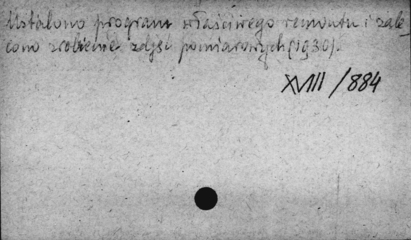 Ustalono program właściwego remontu i zale
cono zrobienie zdjęć pomiarowych (1930).
XVIII/884